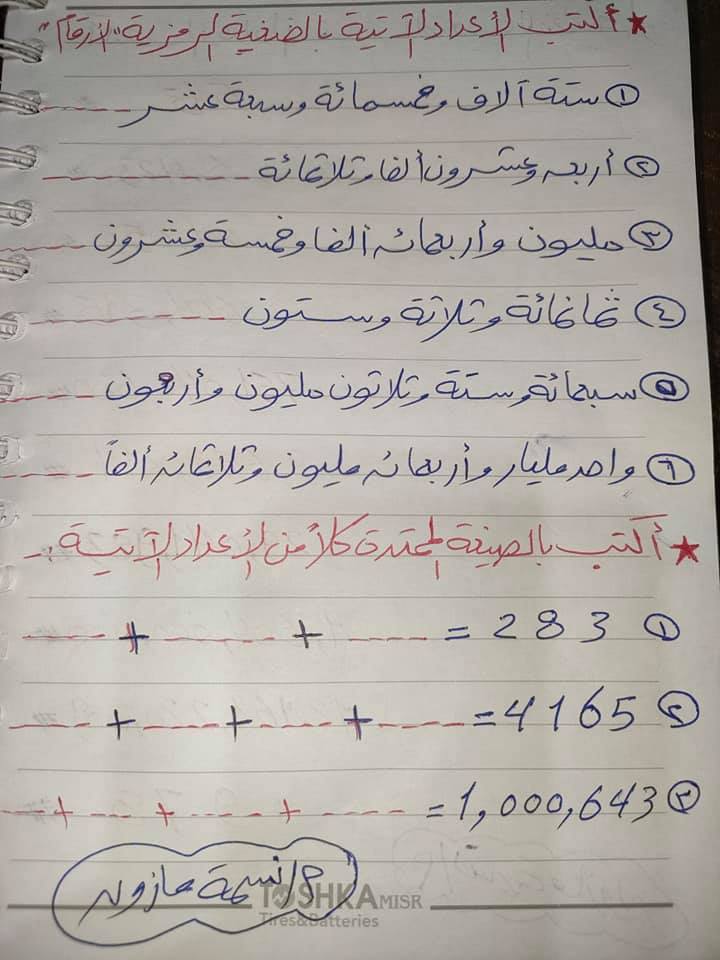 ★ أكتب الأعداد الآتية بالصغية الرمزية "الأرقام"
① ستة آلاف وخمسمائة وسبعة عشر ------
② أربعه وعشرون ألفا وثلاثمائة ------
③ مليون وأربعمائه ألفا وخمسة وعشرون ------
④ ثمانمائة وثلاثة وستون ------
⑤ سبعمائة وستة وثلاثون مليون وأربعون ------
⑥ واحد مليار وأربعمائه مليون وثلاثمائه ألفاً ------
★ أكتب بالصيغة الممتدة كلاً من الأعداد الآتية :-
① 283 = ---- + ---- + ----
② 4165 = ---- + ---- + ---- + ----
③ 1,000,643 = ---- + ---- + ---- + ----
م/ نسمة مازونه
TOSHKA MISR
Tires&Batteries